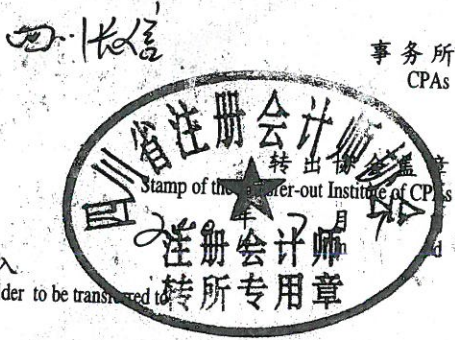 四川长信
事务所
CPAs
四川省注册会计师协会
转出协会盖章
Stamp of the Transfer-out Institute of CPAs
年 月
注册会计师
入
der to be transferred to
转所专用章